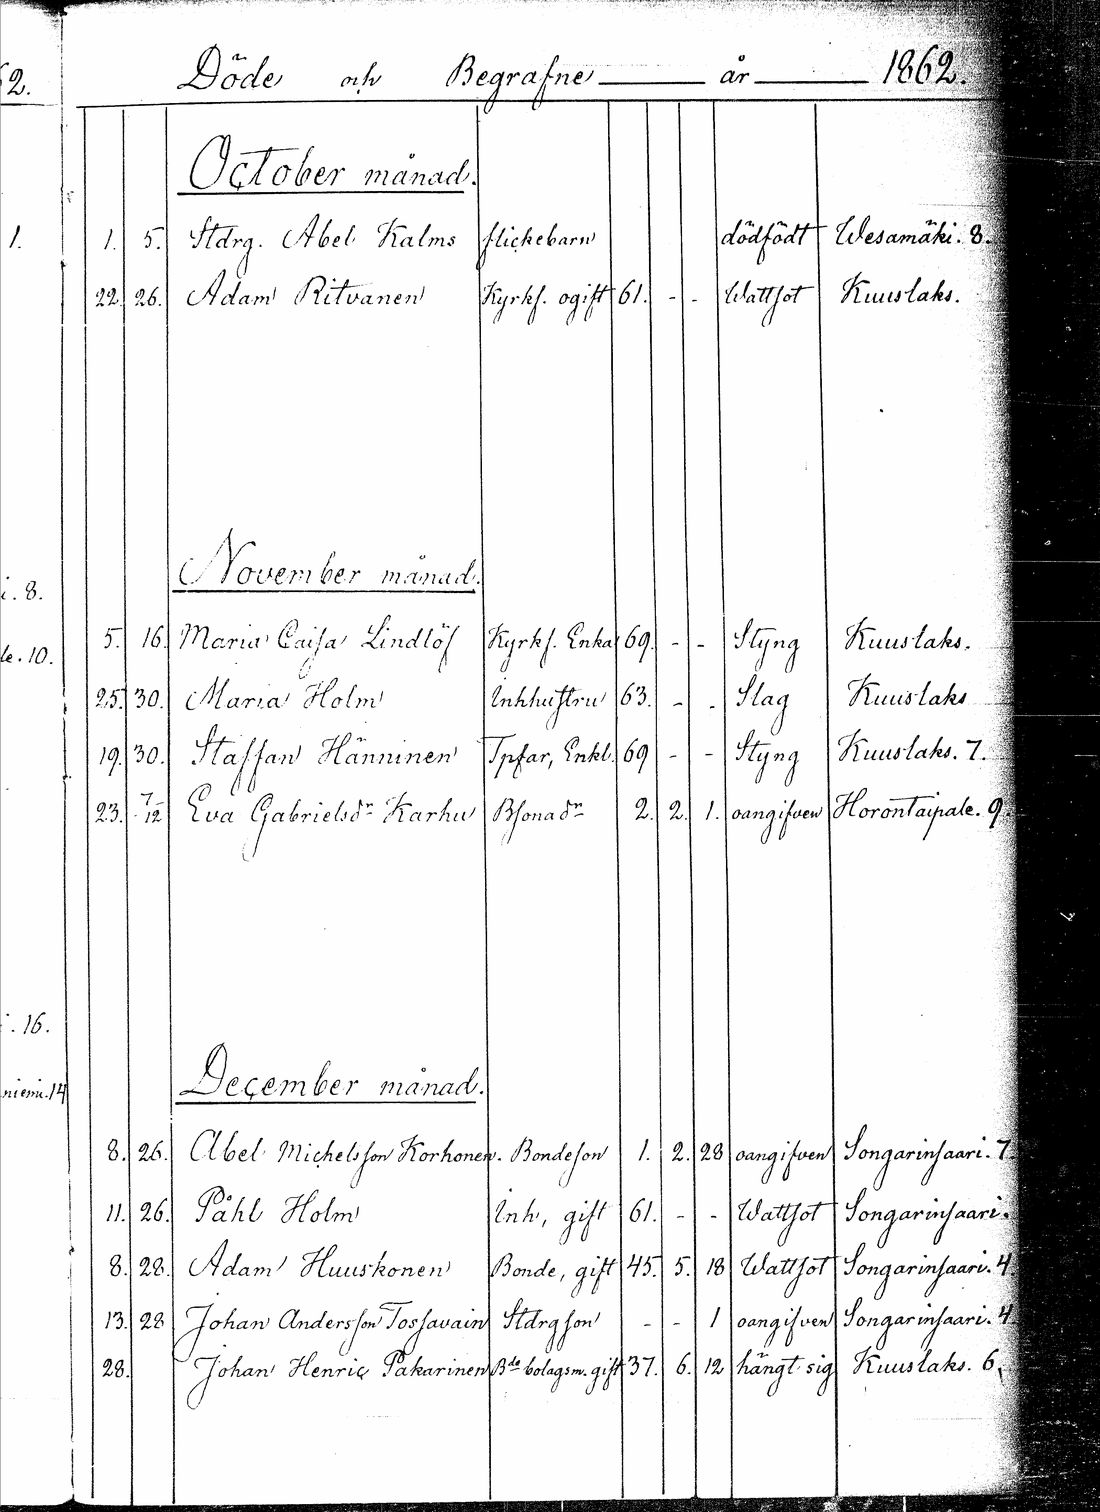 62.
Döde och Begrafne år 1862.
October månad.
1. 1. 5. Stdrg. Abel Kalms flickebarn dödfödt Wesamäki. 8.
22. 26. Adam Ritvanen Kyrkf. ogift 61. - - Wattsot Kuuslaks.
November månad.
i. 8.
5. 16. Maria Caisa Lindlöf Kyrkf. Enka 69. - - Styng Kuuslaks.
le. 10.
25. 30. Maria Holm Inhhustru 63. - - Slag Kuuslaks
19. 30. Staffan Hänninen Tpfar, Enkl. 69 - - Styng Kuuslaks. 7.
23. 7/12 Eva Gabrielsdr Karhu Bsonadr 2. 2. 1. oangifven Horontaipale. 9.
. 16.
December månad.
niemi. 14
8. 26. Abel Michelsson Korhonen. Bondeson 1. 2. 28 oangifven Songarinsaari. 7.
11. 26. Påhl Holm Inh, gift 61. - - Wattsot Songarinsaari.
8. 28. Adam Huuskonen Bonde, gift 45. 5. 18 Wattsot Songarinsaari. 4
13. 28 Johan Andersson Tossavain Stdrgson - - 1 oangifven Songarinsaari. 4.
28. Johan Henric Pakarinen Bde bolagsm. gift 37. 6. 12 hängt sig Kuuslaks. 6.